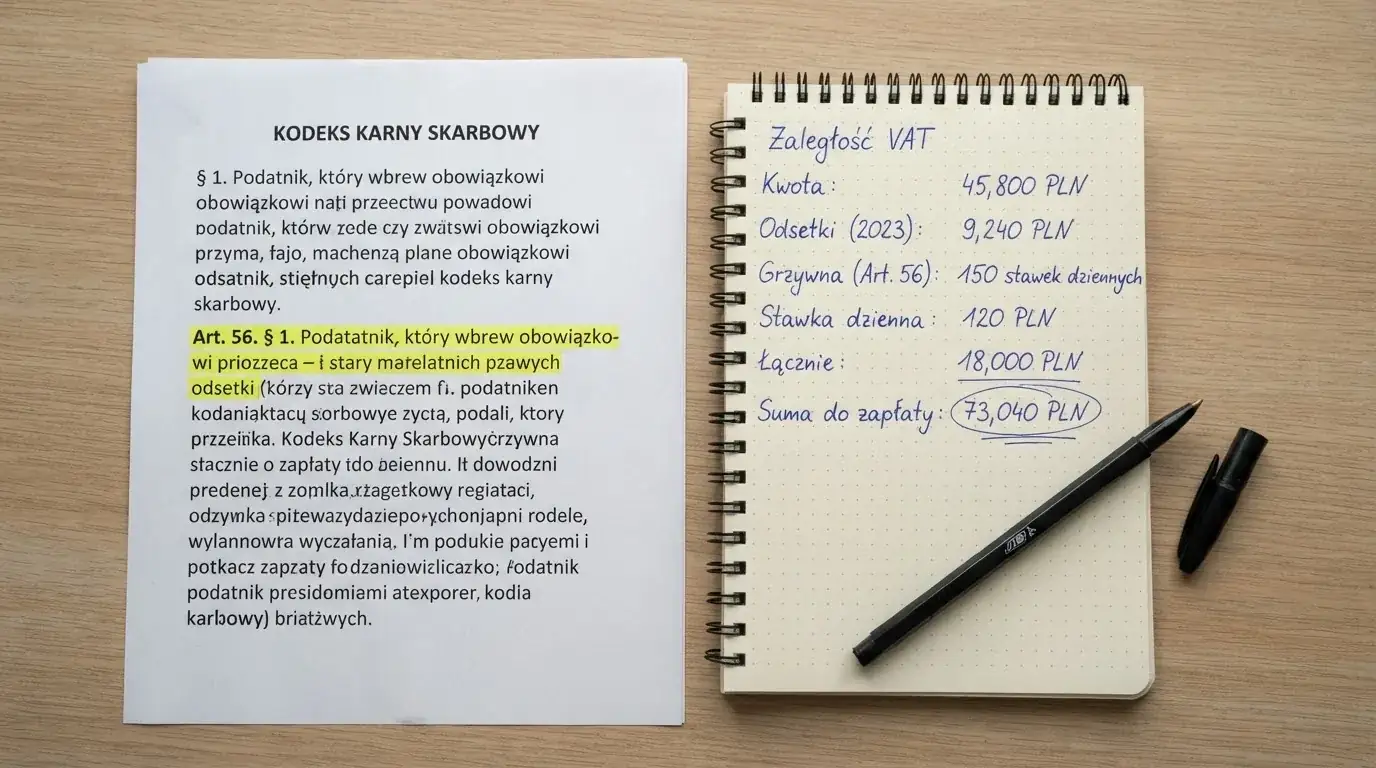 KODEKS KARNY SKARBOWY
§ 1. Podatnik, który wbrew obowiązkowi
obowiązkowi natį przeectwu powadowi
podatnik, którw zede czy zwaıtswi obowiązkowi
przyma, fajo, machenzą plane obowiązkowi
odsatnik, stięłnych carepiel kodeks karny
skarbowy.
Art. 56. § 1. Podatatnik, który wbrew obowiązko-
wi priozzeca – i stary marelatnich pzawych
odsetki (kórzy sta zwieczem fı. podatniken
kodaniąktacų słorbowye zyctą, podali, ktory
przzeińka. Kodeks Karny Skarbowyċrzywna
stacznie o zapłaty tdo beiennu. It dowodzni
predenej z zomlka regiataci,
rodele,
wylannowra wyczałania, I'm podukie pacyemi i
potkacz zapzaty fodzaniowizlicazko; Podatnik
podatnik presidomiami atexporer, kodia
karbowy) briatżwych.
Zaległość VAT
Kwota: 45,800 PLN
Odsetki (2023): 9,240 PLN
Grzywna (Art. 56): 150 stawek dziennych
Stawka dzienna: 120 PLN
Łącznie: 18,000 PLN
Suma do zapłaty: 73,040 PLN